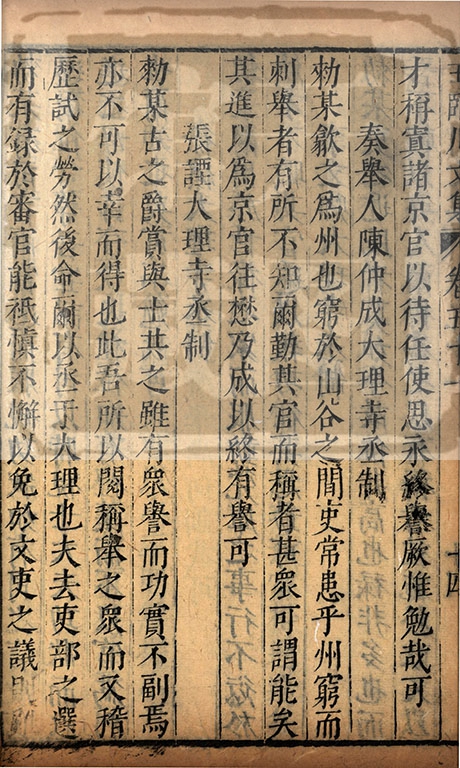 王臨川文集 卷五十一 十四
才稱寘諸京官以待任使思永終譽厥惟勉哉可
奏舉人陳仲成大理寺丞制
勑某歙之爲州也窮於山谷之間吏常患乎州窮而
刺舉者有所不知爾勤其官而稱者甚衆可謂能矣
其進以爲京官往懋乃成以終有譽可
張諲大理寺丞制
勑某古之爵賞與士共之雖有衆譽而功實不副焉
亦不可以幸而得也此吾所以閱稱舉之衆而又稽
歷試之勞然後命爾以丞于大理也夫去吏部之選
而有録於審官能祗慎不懈以免於文吏之議則